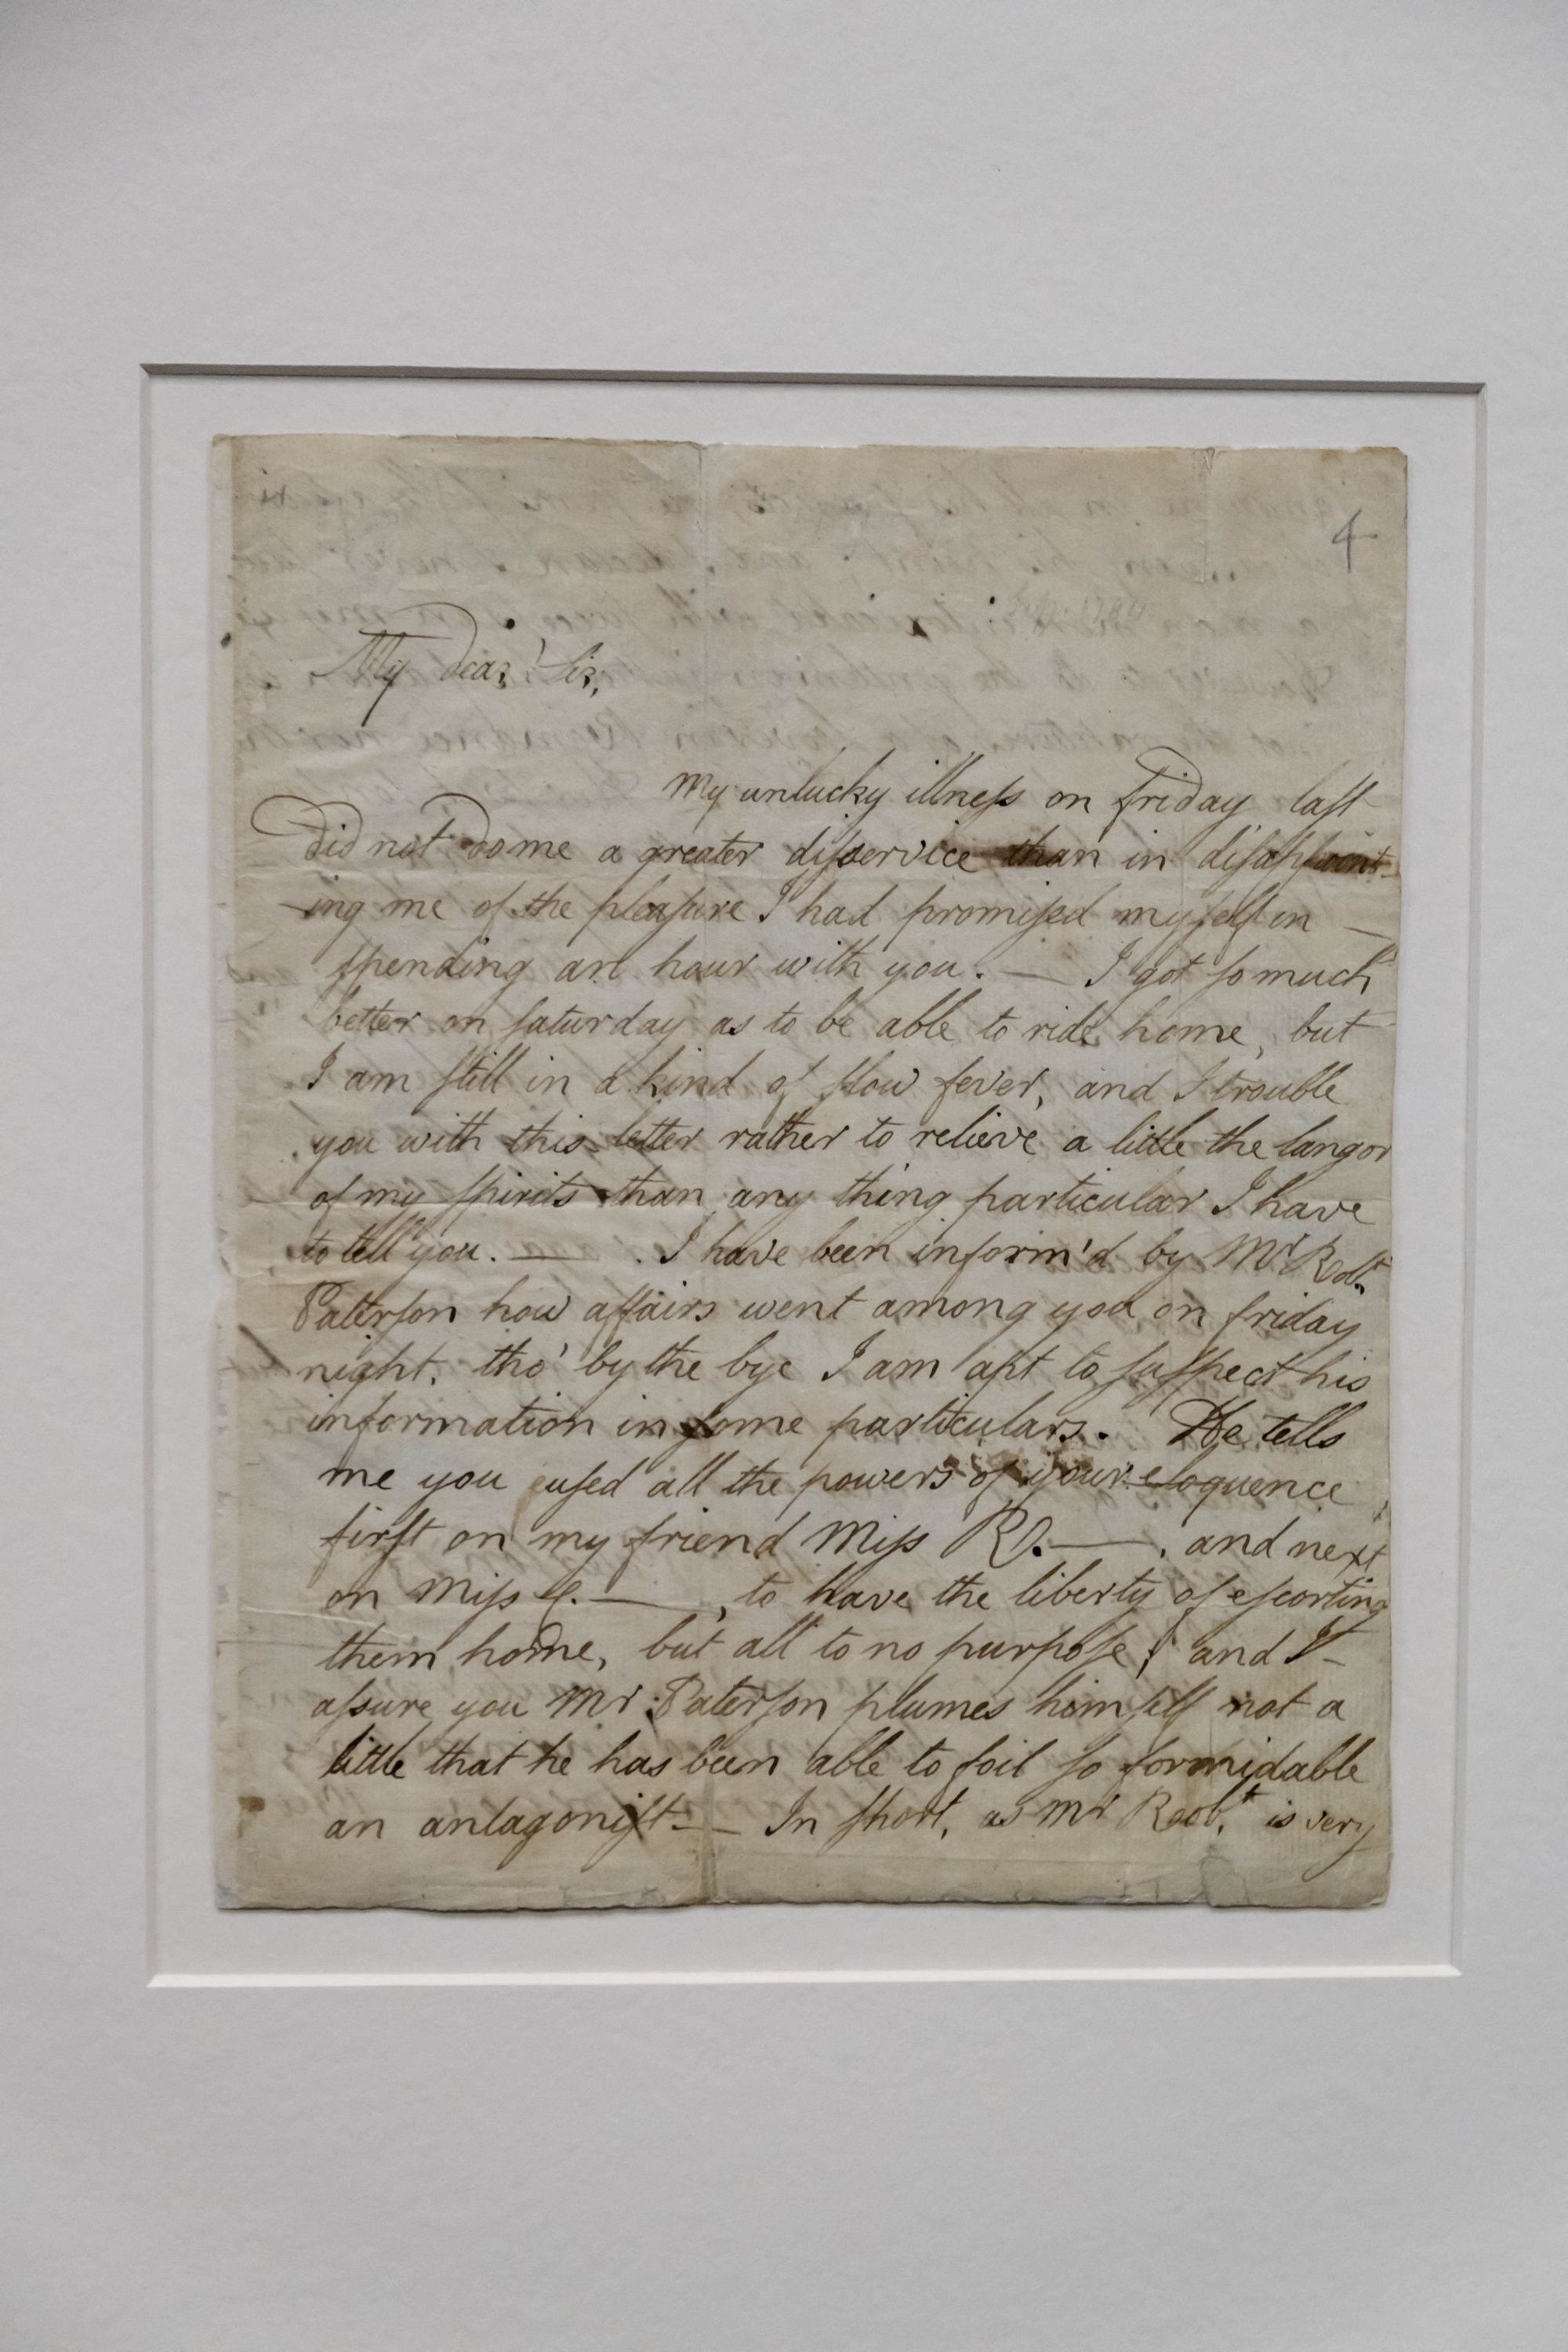 4
My Dear Sir,
My unlucky illneſs on friday laſt
did not do me a greater diſservice than in diſappoint-
-ing me of the pleaſure I had promiſed myſelf in —
ſpending an hour with you. — I got ſo much
better on ſaturday as to be able to ride home, but
I am ſtill in a kind of ſlow fever, and I trouble
you with this letter rather to relieve a little the langor
of my ſpirits than any thing particular I have
to tell you. — I have been inform'd by Mr Robt.
Paterſon how affairs went among you on friday
night, tho' by the bye I am apt to ſuſpect his
information in ſome particulars. He tells
me you uſed all the powers of your eloquence
firſt on my friend Miſs R. —, and next
on Miſs C. —, to have the liberty of eſcorting
them home, but all to no purpoſe; and I —
aſsure you Mr Paterſon plumes himſelf not a
little that he has been able to foil ſo formidable
an antagoniſt. — In ſhort, as Mr Robt. is very